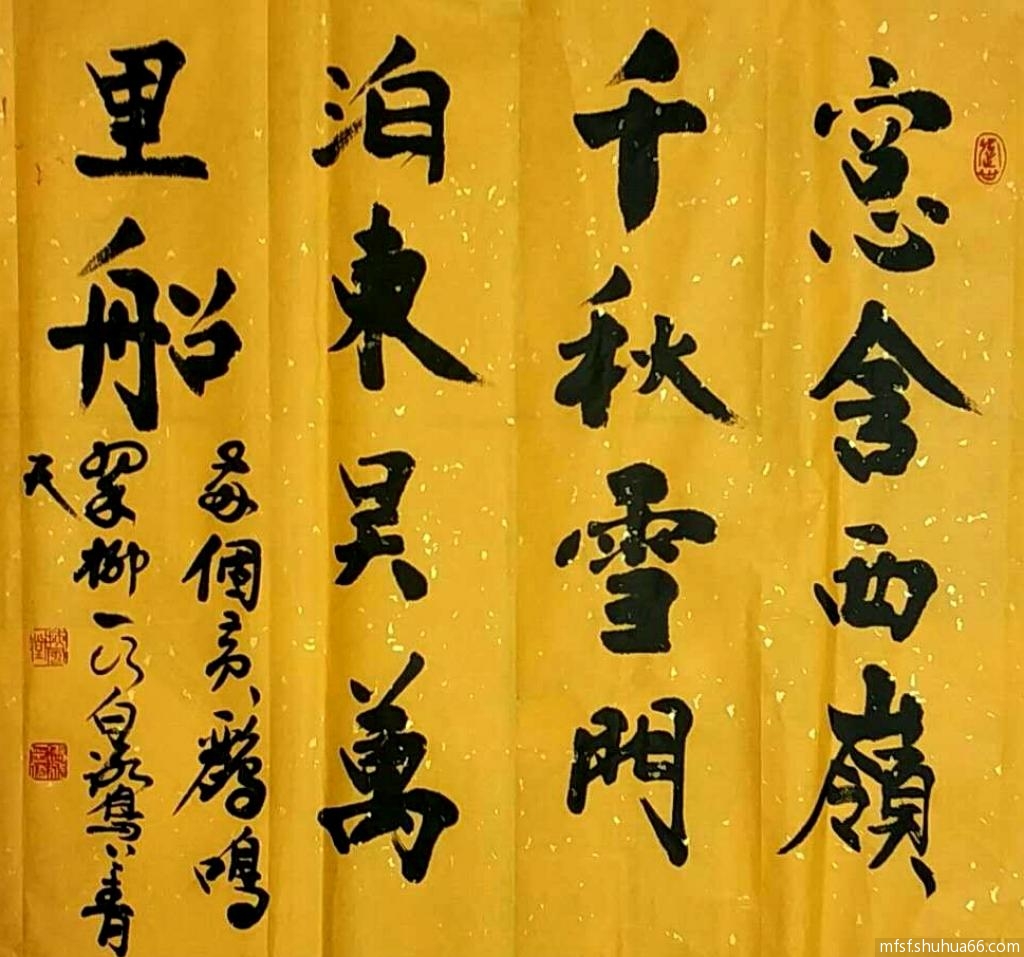 窓舍西嶺
千秋雪門
泊東吴萬
里船
個黃鸝鳴
翠柳一行白鷺上青
天
mfsf.shuhua66.com